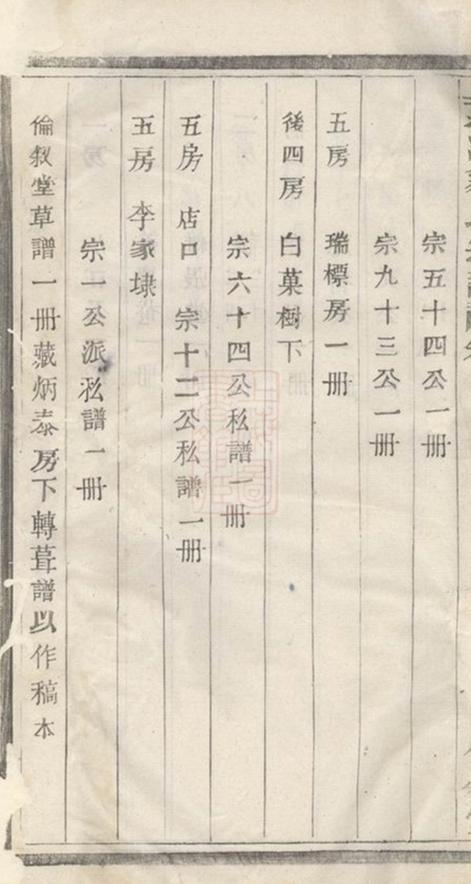 宗五十四公一冊
宗九十三公一冊
五房　瑞標房一冊
後四房　白菓樹下
宗六十四公私譜一冊
五房　店口　宗十二公私譜一冊
五房　李家埭
宗一公派私譜一冊
倫敘堂草譜一冊藏炳泰房下轉葺譜以作稿本